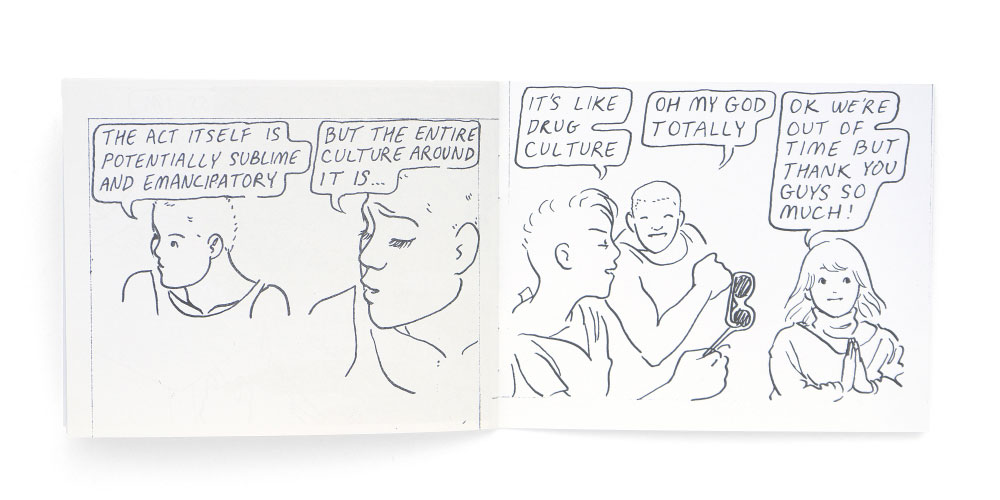 THE ACT ITSELF IS
POTENTIALLY SUBLIME
AND EMANCIPATORY
BUT THE ENTIRE
CULTURE AROUND
IT IS...
IT'S LIKE
DRUG
CULTURE
OH MY GOD
TOTALLY
OK WE'RE
OUT OF
TIME BUT
THANK YOU
GUYS SO
MUCH!